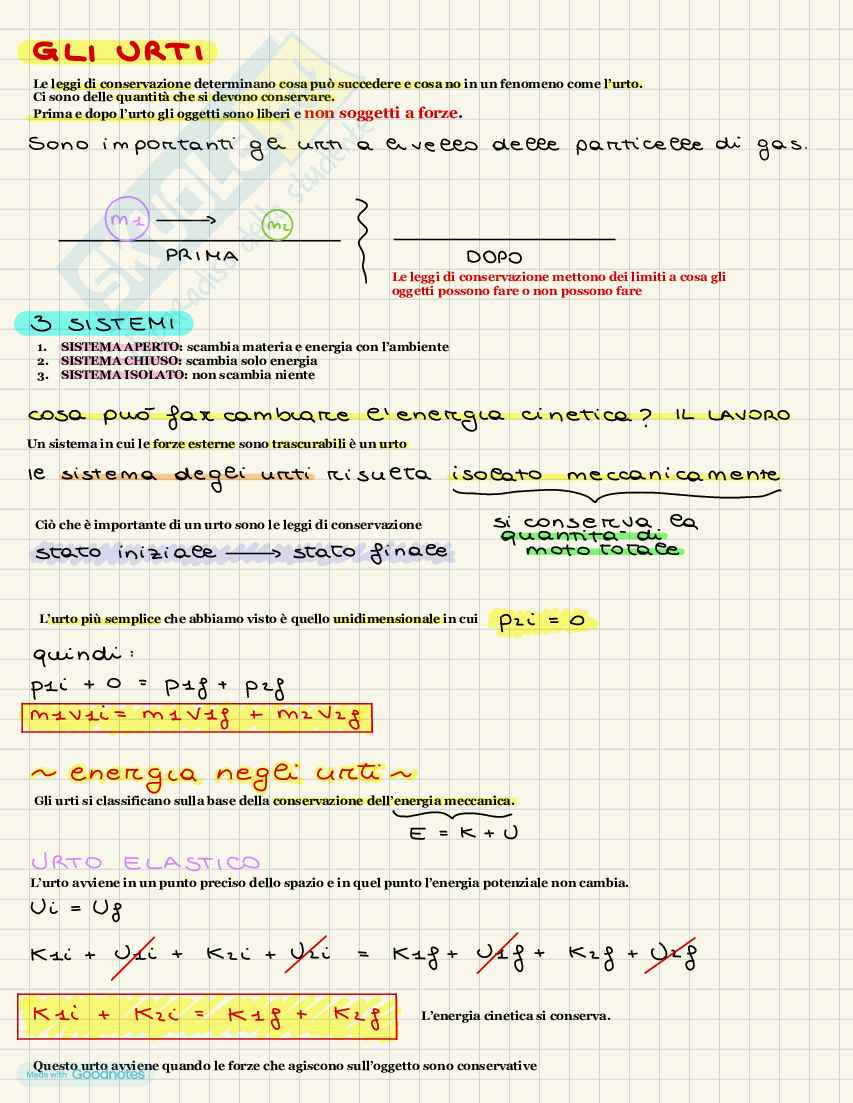 GLI URTI
Le leggi di conservazione determinano cosa può succedere e cosa no in un fenomeno come l'urto.
Ci sono delle quantità che si devono conservare.
Prima e dopo l'urto gli oggetti sono liberi e non soggetti a forze.
Sono importanti gli urti a livello delle particelle di gas.
m1 m2
PRIMA DOPO
Le leggi di conservazione mettono dei limiti a cosa gli
oggetti possono fare o non possono fare
3 SISTEMI
1. SISTEMA APERTO: scambia materia e energia con l'ambiente
2. SISTEMA CHIUSO: scambia solo energia
3. SISTEMA ISOLATO: non scambia niente
cosa può far cambiare l'energia cinetica? IL LAVORO
Un sistema in cui le forze esterne sono trascurabili è un urto
le sistema degli urti risulta isolato meccanicamente
Ciò che è importante di un urto sono le leggi di conservazione
si conserva la
quantità di
moto totale
stato iniziale → stato finale
L'urto più semplice che abbiamo visto è quello unidimensionale in cui p2i = 0
quindi:
p1i + 0 = p1f + p2f
m1v1i = m1v1f + m2v2f
~ energia negli urti ~
Gli urti si classificano sulla base della conservazione dell'energia meccanica.
E = K + U
URTO ELASTICO
L'urto avviene in un punto preciso dello spazio e in quel punto l'energia potenziale non cambia.
Ui = Uf
K1i + U1i + K2i + U2i = K1f + U1f + K2f + U2f
K1i + K2i = K1f + K2f L'energia cinetica si conserva.
Questo urto avviene quando le forze che agiscono sull'oggetto sono conservative
Made with Goodnotes